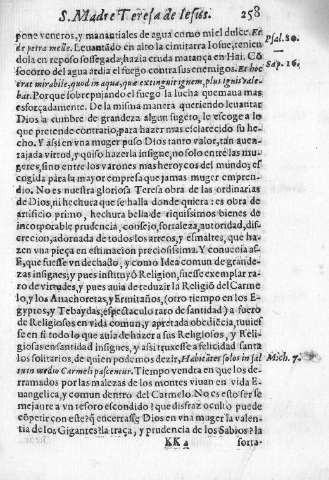 S. Madre Teresa de Iesus. 258
pone veneros, y manantiales de agua como miel dulce. Et
de petra melle. Leuantādo en alto la cimitarra Iosue, tenien
dola en reposo sossegada, hazia cruda matança en Hai. Cō
socorro del agua ardia el fuego contra sus enemigos. Et hoc
erat mirabile, quod in aqua, quæ extinguit ignem, plus ignis vale-
bat. Porque sobrepujando el fuego la lucha quemaua mas
esforçadamente. De la misma manera queriendo leuantar
Dios a cumbre de grandeza algun sugeto, le escoge a lo
que pretende contrario, para hazer mas esclarecido su he-
cho. Y assi en vna muger puso Dios tanto valor, tan auen-
tajada virtud, y quiso hazerla insigne, no solo entre las mu-
geres, sino entre los varones mas heroycos del mundo; es-
cogida para la mayor empresa que jamas muger empren-
dio. No es nuestra gloriosa Teresa obra de las ordinarias
de Dios, ni hechura que se halla donde quiera: es obra de
artificio primo, hechura bella de riquissimos bienes de
incorporable prudencia, consejo, fortaleza, autoridad, dis-
crecion, adornada de todos los arreos, y esmaltes, que ha-
zen vna pieça en estimacion preciosissima. Y conuenia assi
E, que fuesse vn dechado, y como Idea comun de grande-
zas insignes; y pues instituyō Religion, fuesse exemplar ra-
ro de virtudes, y pues auia de reduzir la Religiō del Carme
lo, y los Anachoretas, y Ermitaños, (otro tiempo en los E-
gyptos, y Tebaydas, espectaculo raro de santidad) a fuero
de Religiosos en vida comun, y apretada obediēcia, tuuies
se en si todo lo que auia de hazer a sus Religiosos, y Reli-
giosas en santidad insignes, y assi truxesse a felicidad santa
los solitarios, de quien podemos dezir, Habitātes solos in sal
tu in medio Carmeli pascentur. Tiempo vendra en que los de-
rramados por las malezas de los montes viuan en vida E-
uangelica, y comun dentro del Carmelo. No es esto ser se
mejante a vn tesoro escondido? que disfraz oculto puede
cōpetir con este? q̄ encerrasse Dios en vna muger la valen-
tia de los Gigantes? la traça, y prudencia de los Sabios? la
KK 2 forta-
Psal. 80.
Sap. 16.
Mich. 7.